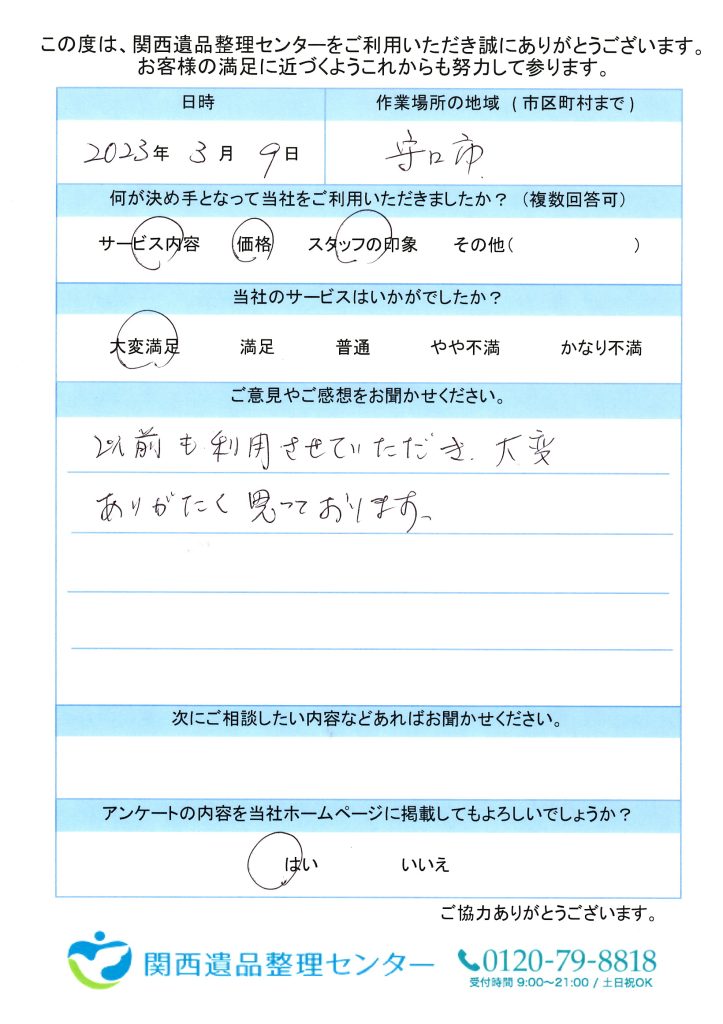 この度は、関西遺品整理センターをご利用いただき誠にありがとうございます。
お客様の満足に近づくようこれからも努力して参ります。
日時
作業場所の地域 (市区町村まで)
2023年 3月 9日
守口市
何が決め手となって当社をご利用いただきましたか？ (複数回答可)
サービス内容 価格 スタッフの印象 その他( )
当社のサービスはいかがでしたか？
大変満足 満足 普通 やや不満 かなり不満
ご意見やご感想をお聞かせください。
以前も利用させていただき、大変
ありがたく思っております。
次にご相談したい内容などあればお聞かせください。
アンケートの内容を当社ホームページに掲載してもよろしいでしょうか？
はい いいえ
ご協力ありがとうございます。
関西遺品整理センター
0120-79-8818
受付時間 9:00～21:00 / 土日祝OK